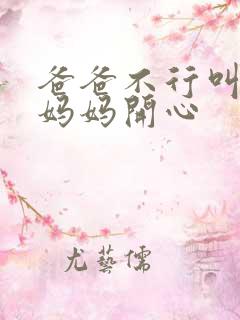 爸爸不行叫
妈妈開心
尤藝儒